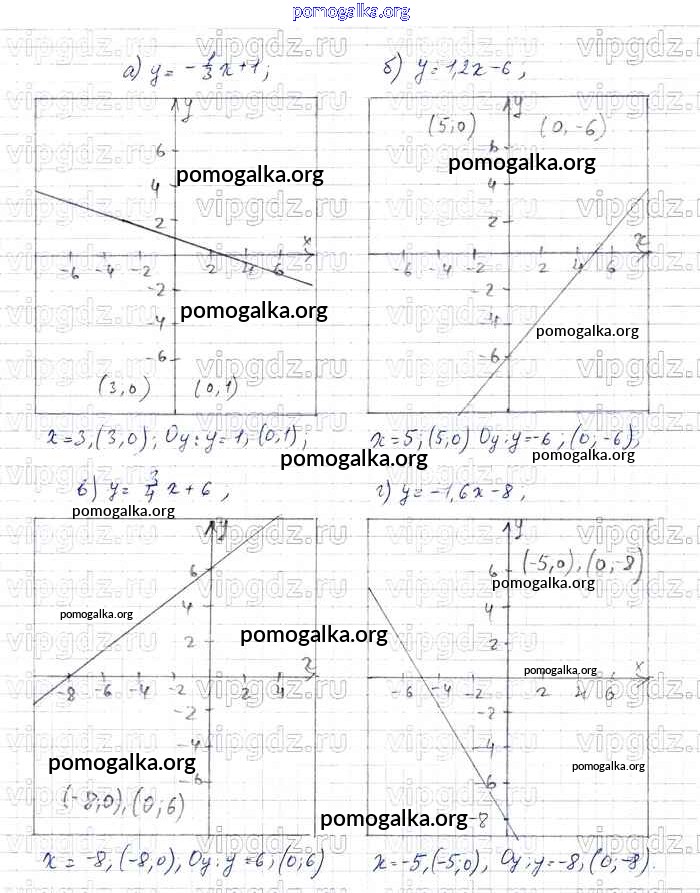 pomogalka.org
а) y = -1/3 x + 1; б) y = 1,2x - 6;
y y
(5;0) (0,-6)
6 6
pomogalka.org pomogalka.org
4 4
2 2
x x
-6 -4 -2 2 4 6 -6 -4 -2 2 4 6
-2 -2
pomogalka.org
-4 -4
pomogalka.org
-6 -6
(3,0) (0,1)
x = 3, (3,0); Oy: y = 1, (0,1); x = 5; (5,0) Oy: y = -6; (0,-6);
pomogalka.org pomogalka.org
в) y = 3/4 x + 6; г) y = -1,6x - 8;
pomogalka.org
y y
(-5,0), (0,-8)
6 6
pomogalka.org
4 4
pomogalka.org
2 2
pomogalka.org
x pomogalka.org x
-8 -6 -4 -2 2 4 -6 -4 -2 2 4 6
-2 -2
-4 -4
pomogalka.org pomogalka.org
-6 -6
(-8,0), (0;6)
pomogalka.org -8
x = -8, (-8,0), Oy: y = 6; (0;6) x = -5, (-5;0), Oy: y = -8, (0;-8).
vipgdz.ru